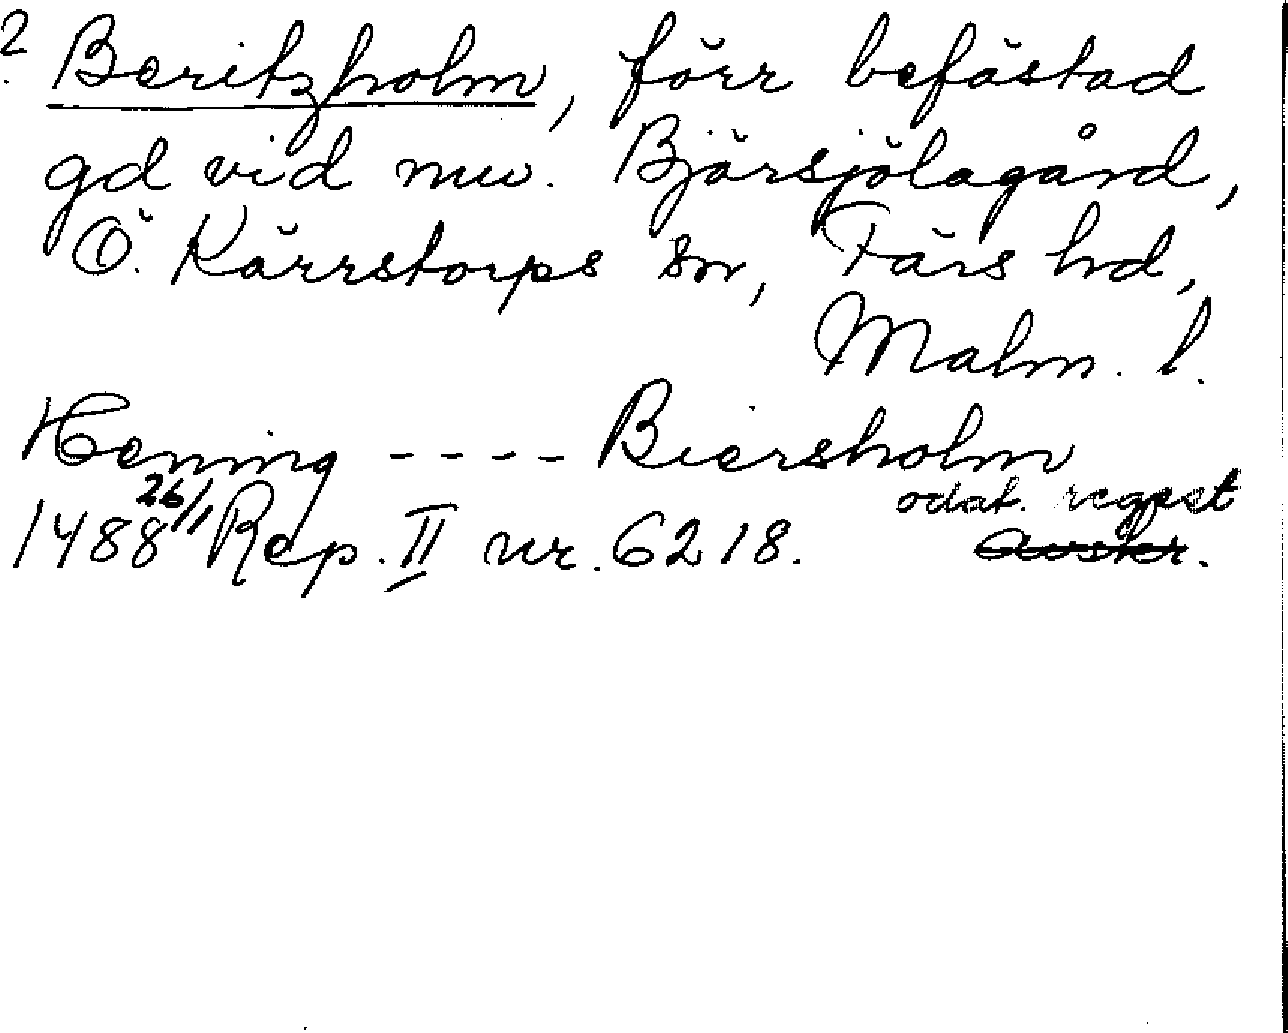 ? Beritzholm, förr befästad
gd vid nuv. Bjärsjölagård,
Ö. Kärrstorps sn, Färs hd,
Malm. l.
Hening ---- Biersholm
odat. regest
1488 26/1 Rep. II nr. 6218. avskr.